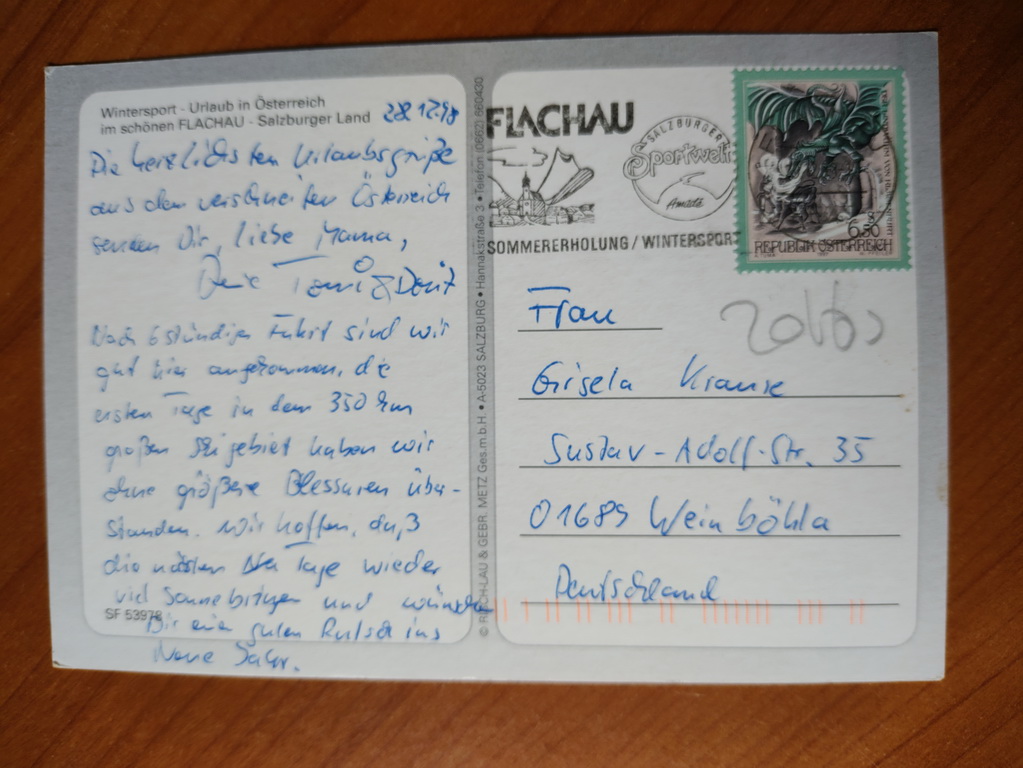 Wintersport - Urlaub in Österreich
im schönen FLACHAU - Salzburger Land
28.12.98
Die herzlichsten Urlaubsgrüße
aus dem verschneiten Österreich
senden Dir, liebe Mama,
Deine &
Nach 6stündiger Fahrt sind wir
gut hier angekommen, die
ersten Tage in dem 350 km
großen Skigebiet haben wir
ohne größere Blessuren über-
standen. Wir hoffen, daß
die nächsten Tage wieder
viel Sonne bringen und wünschen
Dir einen guten Rutsch ins
Neue Jahr.
SF 53978
METZ Ges.m.b.H. • A-5023 SALZBURG • Hannakstraße 3 • Telefon (0662) 660430
FLACHAU
SALZBURGER
Sportwelt
Amadé
SOMMERERHOLUNG / WINTERSPORT
6.50
REPUBLIK ÖSTERREICH
Frau
Gisela Krause
Gustav-Adolf-Str. 35
01689 Weinböhla
Deutschland